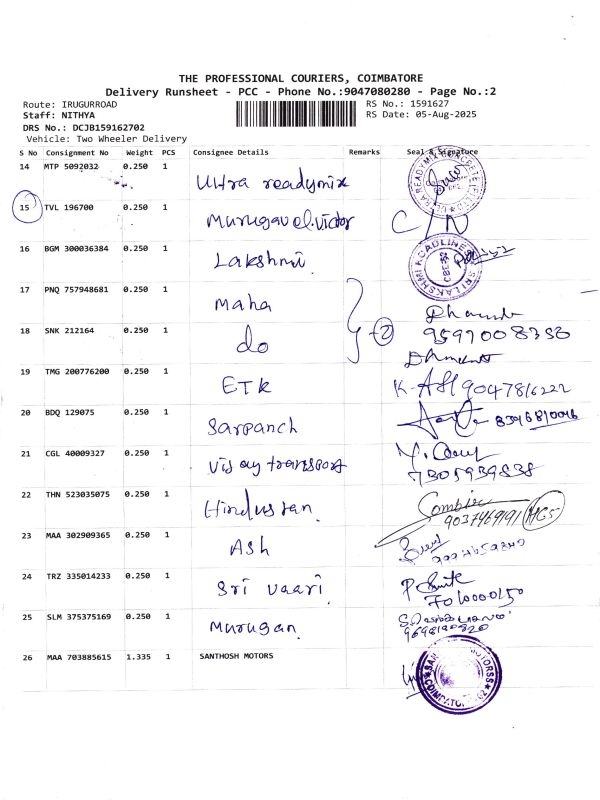 THE PROFESSIONAL COURIERS, COIMBATORE
Delivery Runsheet - PCC - Phone No.:9047080280 - Page No.:2
Route: IRUGURROAD RS No.: 1591627
Staff: NITHYA RS Date: 05-Aug-2025
DRS No.: DCJB159162702
Vehicle: Two Wheeler Delivery
S No Consignment No Weight PCS Consignee Details Remarks Seal & Signature
14 MTP 5092032 0.250 1 Ultra readymix
15 TVL 196700 0.250 1 Murugavel.victor C/N
16 BGM 300036384 0.250 1 Lakshmi
17 PNQ 757948681 0.250 1 Maha
18 SNK 212164 0.250 1 do 2 9597008350
19 TMG 200776200 0.250 1 ETK 9047816222
20 BDQ 129075 0.250 1 Sarpanch
21 CGL 40009327 0.250 1 Vijay transport 7305939838
22 THN 523035075 0.250 1 Hindustan 9037469191
23 MAA 302909365 0.250 1 Ash
24 TRZ 335014233 0.250 1 Sri vaari
25 SLM 375375169 0.250 1 Murugan
26 MAA 703885615 1.335 1 SANTHOSH MOTORS